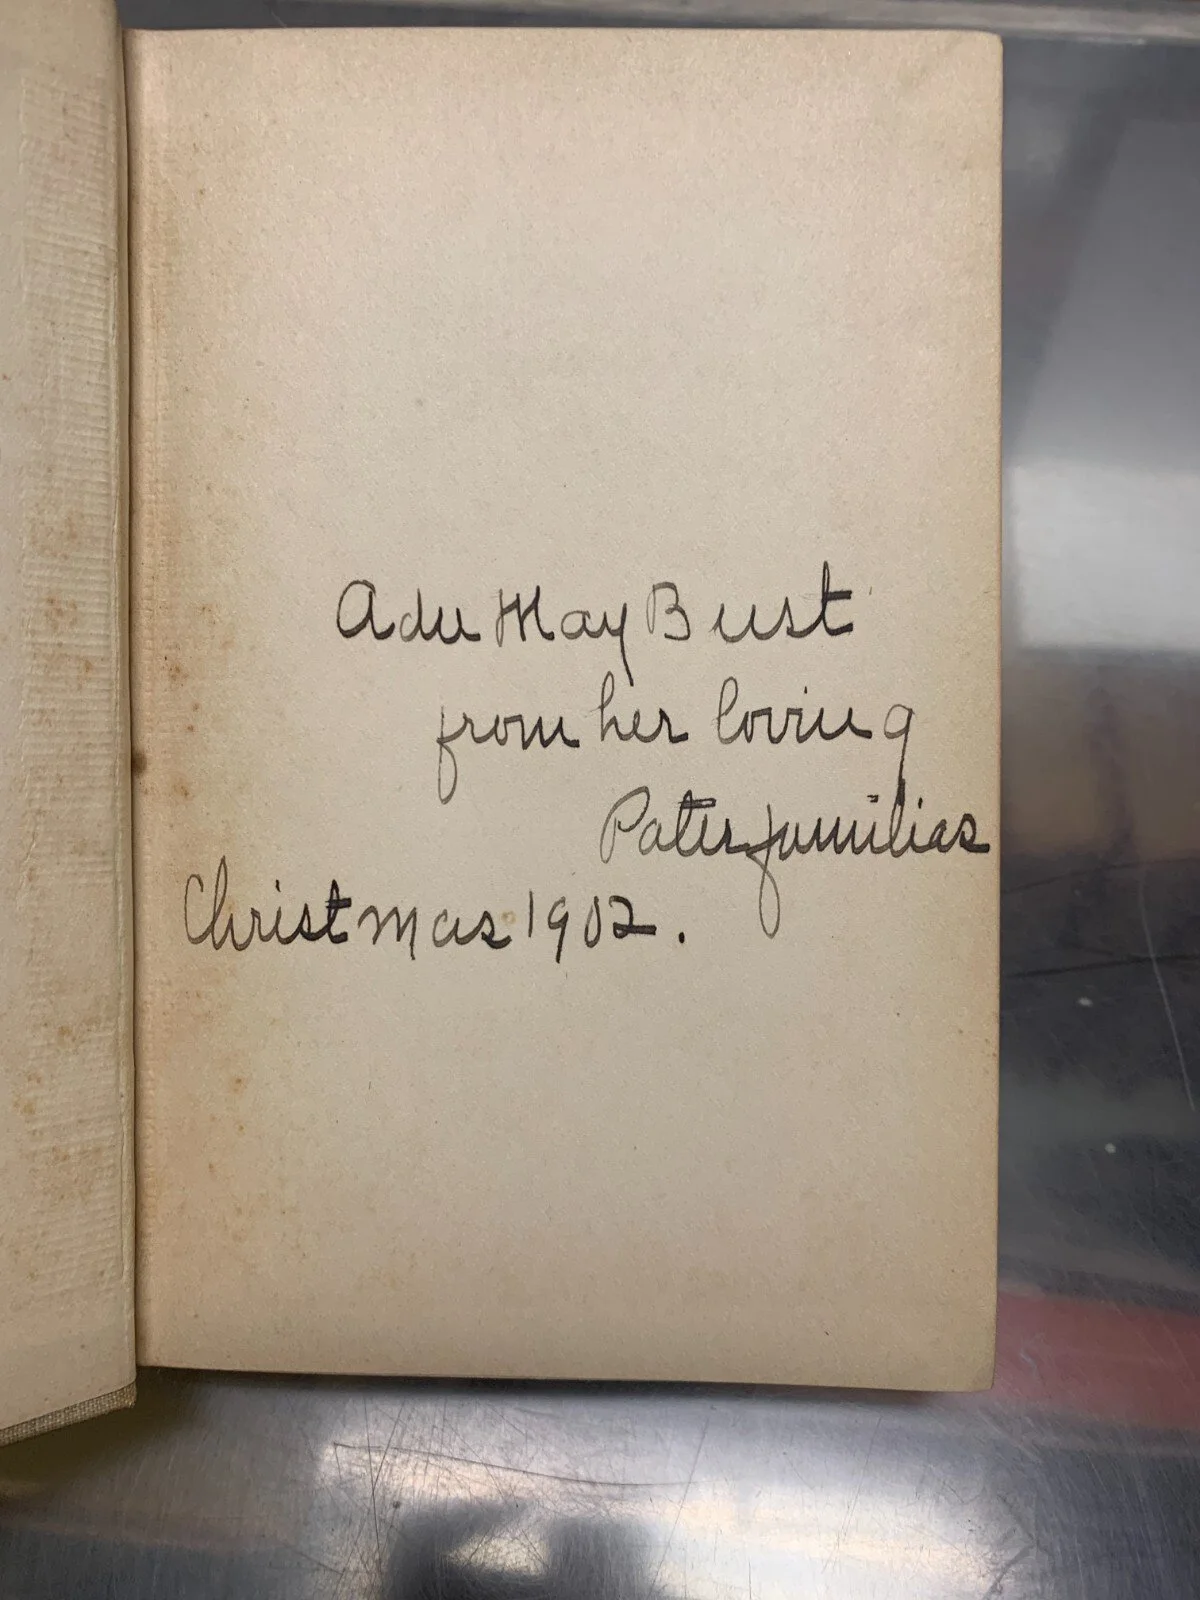 Ada May Bust
from her loving
Paterfamilias
Christmas 1902.